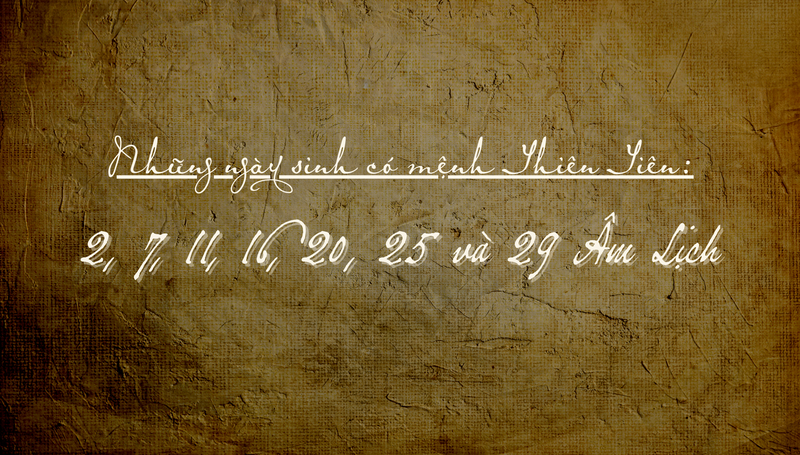 Những ngày sinh có mệnh Thiên Tiên:
2, 7, 11, 16, 20, 25 và 29 Âm Lịch